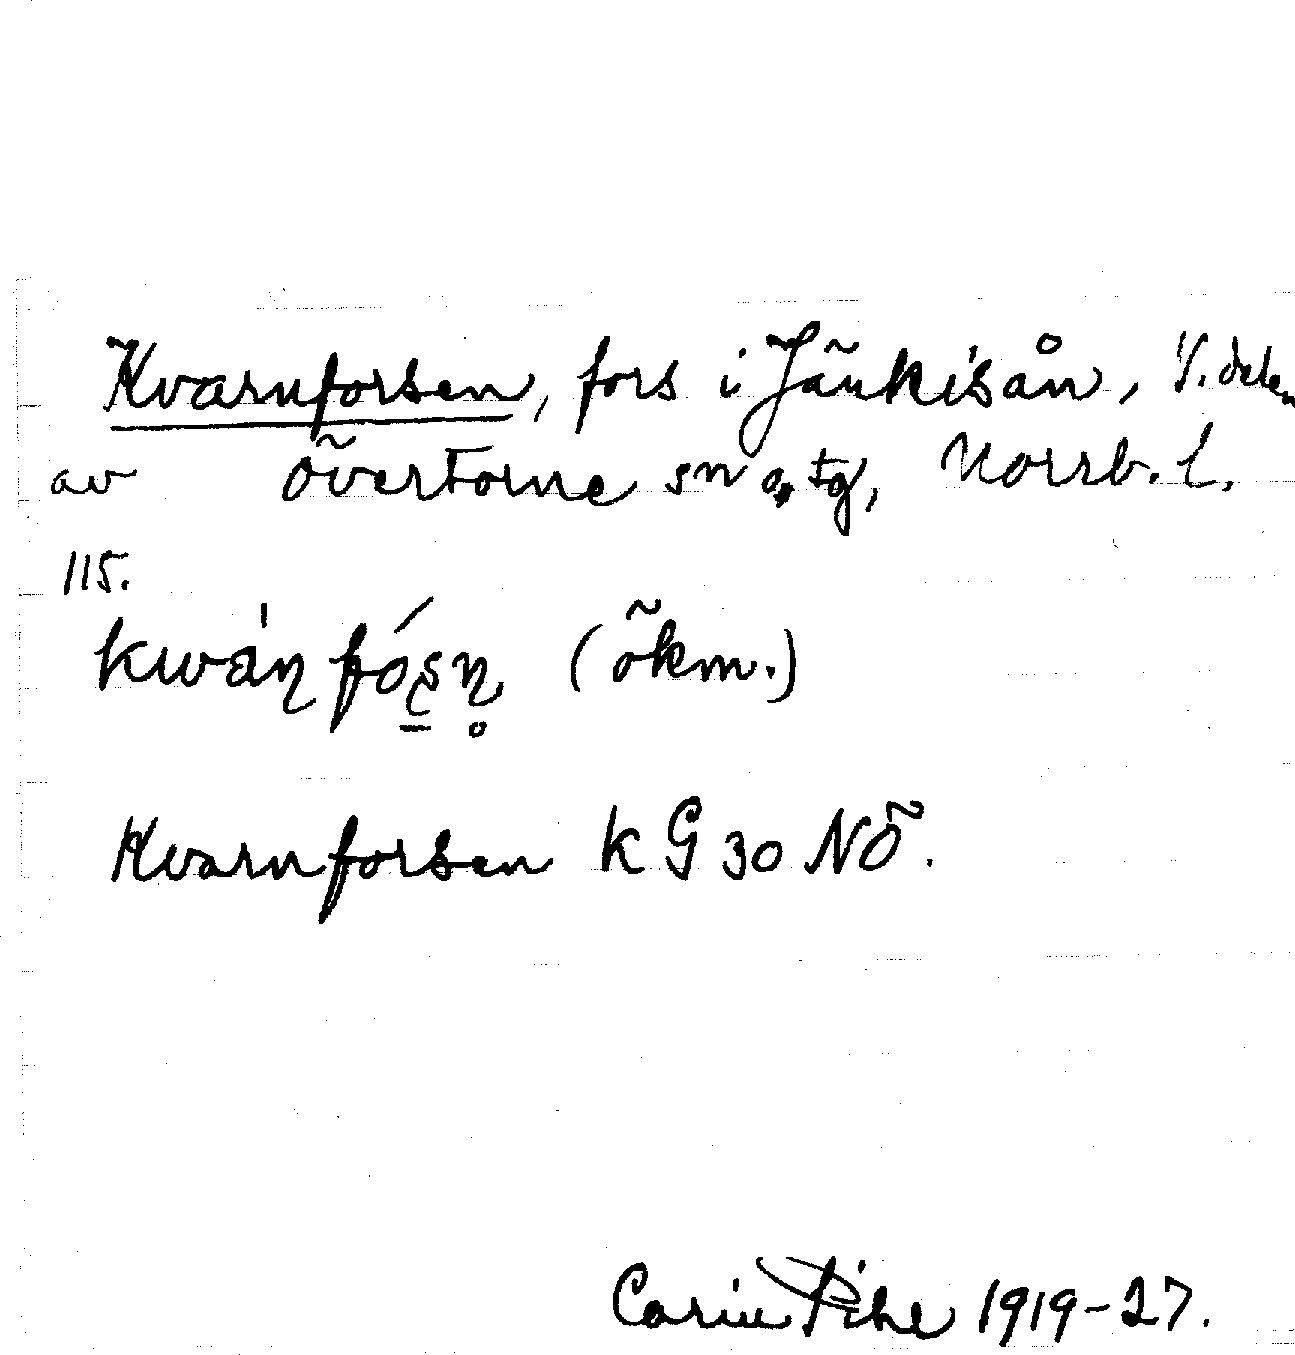 Kvarnforsen, fors i Jänkisån, V. delen
av Övertorne sn o. tg, Norrb. l.
115.
(ökm.)
Kvarnforsen k G 30 NÖ.
Carin Pihl 1919-27.